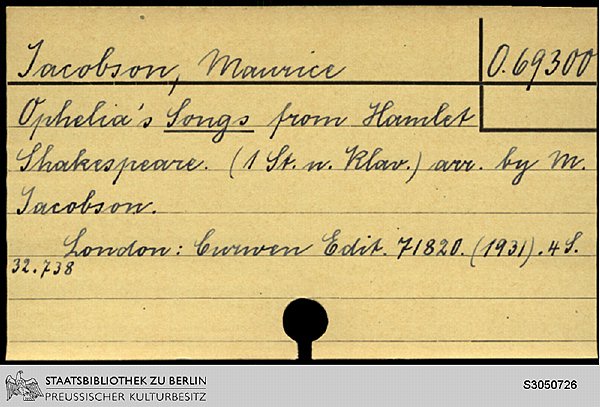 Jacobson, Maurice
O.69300
Ophelia's Songs from Hamlet
Shakespeare. (1 St. u. Klav.) arr. by M.
Jacobson.
London: Curwen Edit. 71820. (1931). 4 S.
32.738
STAATSBIBLIOTHEK ZU BERLIN
PREUSSISCHER KULTURBESITZ
S3050726